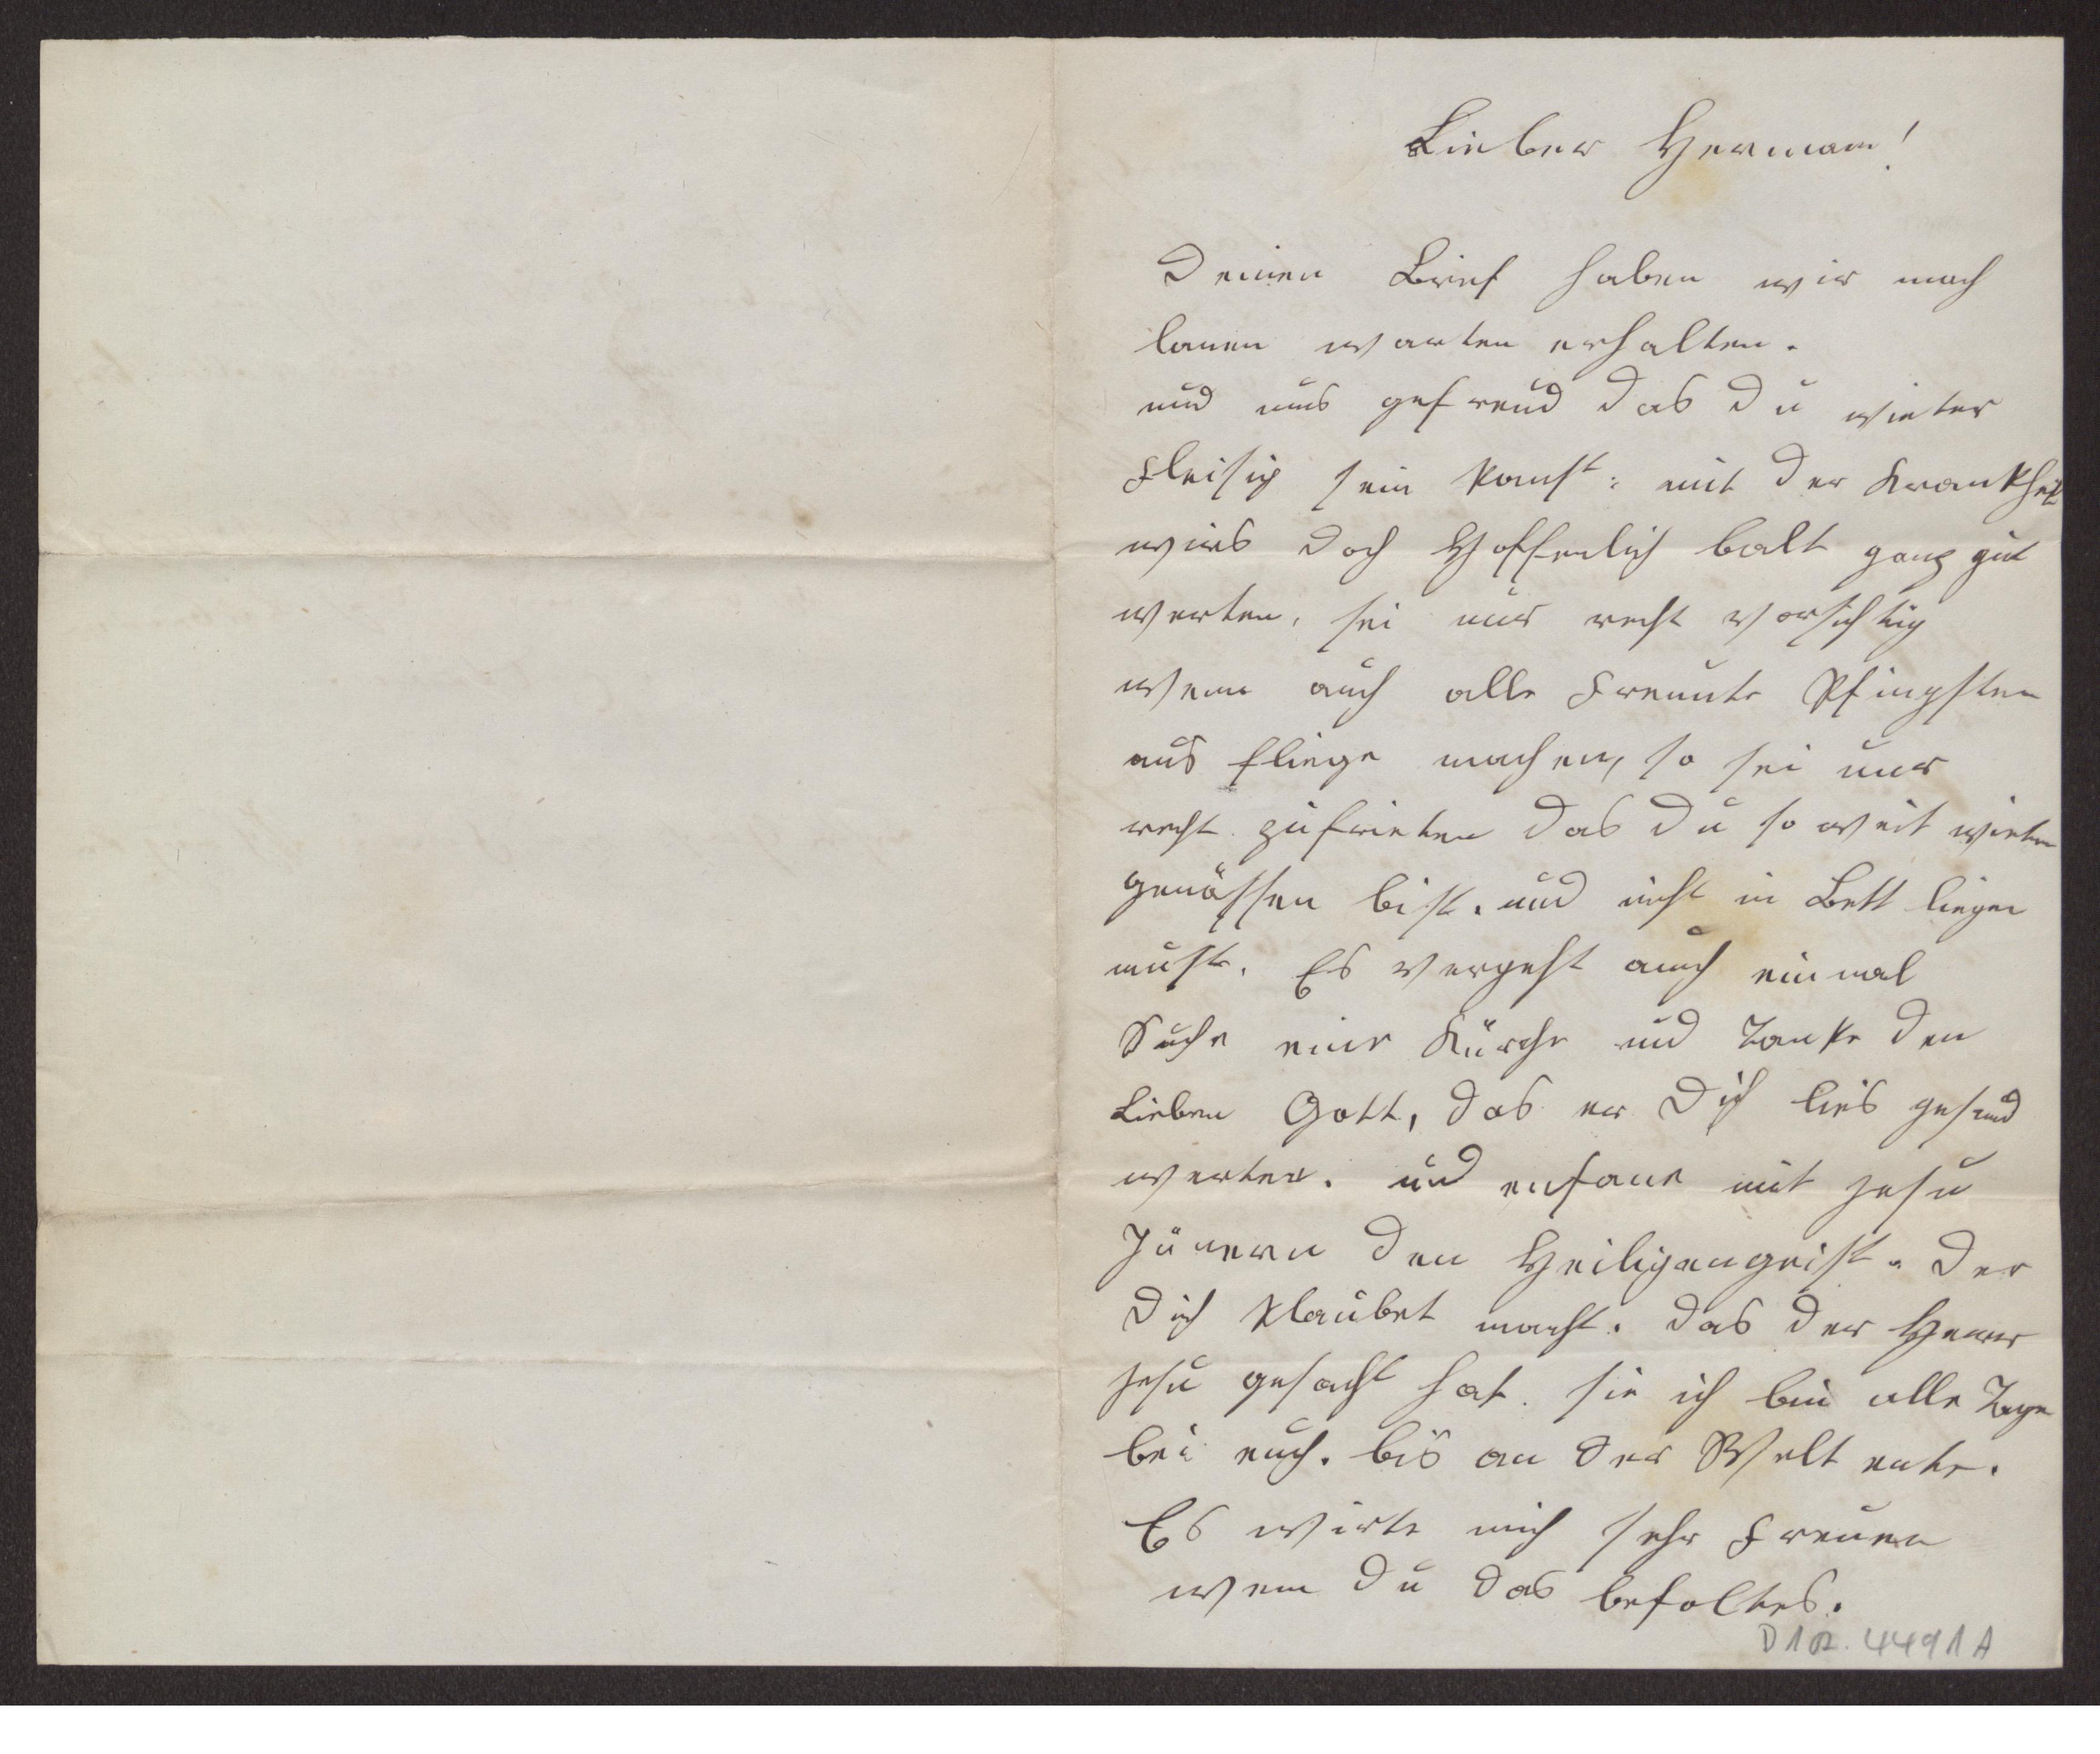 Lieber Hermann!
Deinen Brief haben wir nach
lanen warten erhalten.
und uns gefreud das du wieter
Fleisig sein kanst: mit der Krankheit
wirs doch Hoffenlich balt ganz gut
werten, sei nur recht vorsichtig
wenn auch alle Freunte Pfingsten
aus fliege machen, so sei nur
recht zufrieten das du so weit wieter
genässen bist. und nicht in Bett liegen
must. Es vergeht auch einmal
Suche eine Kürche und Tanke den
Lieben Gott, das er Dich lies gesund
werten. und enfane mit Jesu
Jünern den Heiligengeist. Der
Dich klaubet macht. das der Herr
Jesu gesacht hat. sie ich bin alle Tage
bei euch. bis an der Welt ente.
Es wirte mich sehr Freuen
wenn du das befoltes.
D1Oz. 4491A